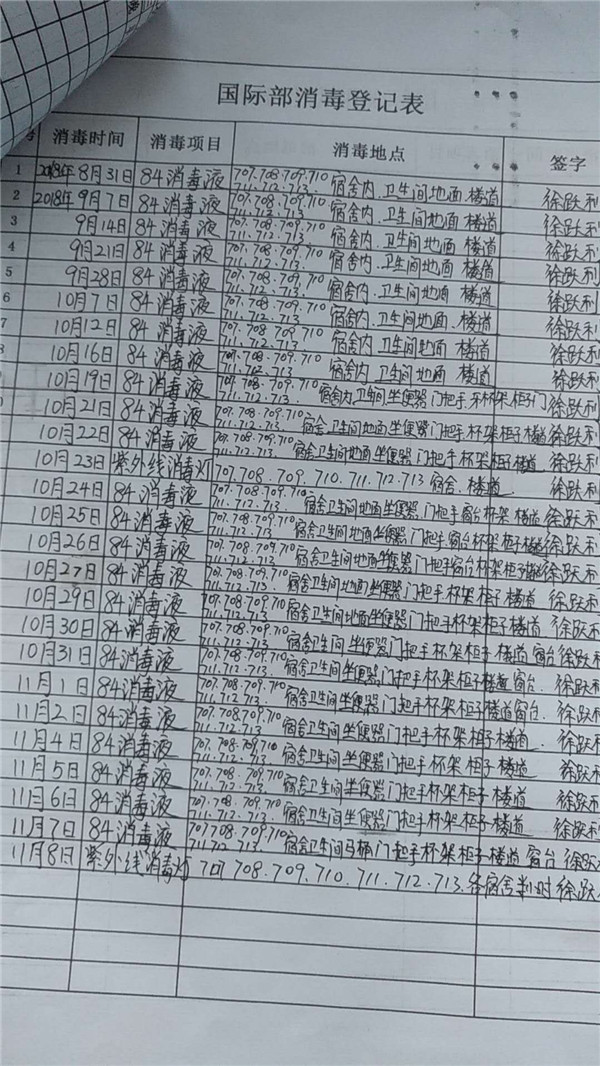 国际部消毒登记表
号 消毒时间 消毒项目 消毒地点 签字
1 2018年8月31日 84消毒液 707.708.709.710 711.712.713. 宿舍内.卫生间地面.楼道 徐跃利
2 2018年9月7日 84消毒液 707.708.709.710 711.712.713. 宿舍内.卫生间地面.楼道 徐跃利
3 9月14日 84消毒液 707.708.709.710 711.712.713. 宿舍内.卫生间地面 楼道 徐跃利
4 9月21日 84消毒液 707.708.709.710 711.712.713. 宿舍内.卫生间地面 楼道 徐跃利
5 9月28日 84消毒液 707.708.709.710 711.712.713. 宿舍内.卫生间地面 楼道 徐跃利
6 10月7日 84消毒液 707.708.709.710 711.712.713 宿舍内.卫生间地面 楼道 徐跃利
7 10月12日 84消毒液 707.708.709.710 711.712.713 宿舍内.卫生间地面 楼道 徐跃利
10月16日 84消毒液 707.708.709.710 711.712.713 宿舍内.卫生间地面 楼道 徐跃利
10月19日 84消毒液 宿舍内.卫生间.坐便器 门把手.杯架.柜子门 徐跃利
10月21日 84消毒液 707.708.709.710 711.712.713. 宿舍.卫生间地面.坐便器门把手.杯架柜子楼道 徐跃利
10月22日 84消毒液 707.708.709.710 711.712.713. 宿舍卫生间地面坐便器门把手杯架柜子楼道 徐跃利
10月23日 紫外线消毒灯 707.708.709.710.711.712.713 宿舍.楼道 徐跃利
10月24日 84消毒液 707.708.709.710 711.712.713. 宿舍卫生间地面坐便器门把手窗台杯架柜子楼道 徐跃利
10月25日 84消毒液 707.708.709.710 711.712.713. 宿舍卫生间地面坐便器门把手窗台杯架柜子楼道 徐跃利
10月26日 84消毒液 707.708.709.710 711.712.713. 宿舍卫生间地面坐便器门把手窗台杯架柜子楼道 徐跃利
10月27日 84消毒液 707.708.709.710 711.712.713. 宿舍卫生间地面坐便器门把手杯架柜子楼道 徐跃利
10月29日 84消毒液 707.708.709.710 711.712.713. 宿舍卫生间地面坐便器门把手杯架柜子楼道 徐跃利
10月30日 84消毒液 707.708.709.710 711.712.713. 宿舍卫生间坐便器门把手杯架柜子楼道 窗台 徐跃利
10月31日 84消毒液 707.708.709.710 711.712.713. 宿舍卫生间坐便器门把手杯架柜子楼道 窗台. 徐跃利
11月1日 84消毒液 707.708.709.710 711.712.713. 宿舍卫生间坐便器门把手杯架柜子楼道窗台. 徐跃利
11月2日 84消毒液 707.708.709.710 711.712.713. 宿舍卫生间坐便器门把手杯架柜子楼道. 徐跃利
11月4日 84消毒液 707.708.709.710 711.712.713. 宿舍卫生间坐便器门把手杯架柜子 楼道 徐跃利
11月5日 84消毒液 707.708.709.710 711.712.713. 宿舍卫生间坐便器门把手杯架柜子 楼道 徐跃利
11月6日 84消毒液 707.708.709.710 711.712.713. 宿舍卫生间坐便器门把手杯架柜子 楼道 徐跃利
11月7日 84消毒液 707.708.709.710 711.712.713. 宿舍卫生间马桶门把手杯架柜子楼道 窗台 徐跃利
11月8日 紫外线消毒灯 707.708.709.710.711.712.713.各宿舍 时 徐跃利